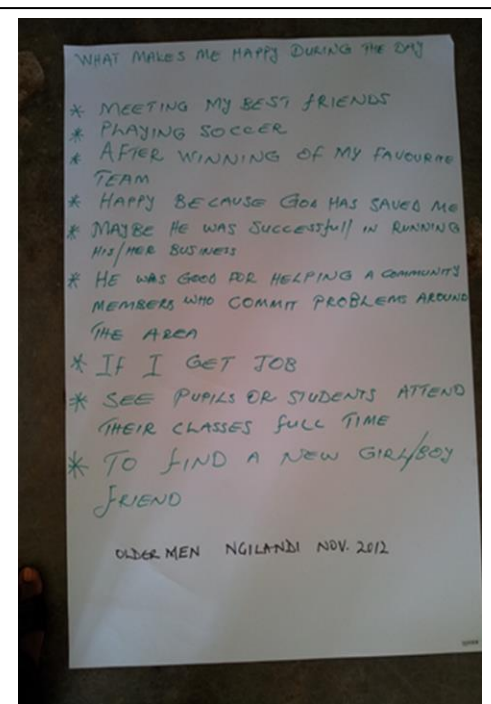 WHAT MAKES ME HAPPY DURING THE DAY
* MEETING MY BEST FRIENDS
* PLAYING SOCCER
* AFTER WINNING OF MY FAVOURITE
TEAM
* HAPPY BECAUSE GOD HAS SAVED ME
* MAYBE HE WAS SUCCESSfull IN RUNNING
HIS/HER BUSINESS
* HE WAS GOOD FOR HELPING A COMMUNITY
MEMBERS WHO COMMIT PROBLEMS AROUND
THE AREA
* If I GET JOB
* SEE PUPILS OR STUDENTS ATTEND
THEIR CLASSES FULL TIME
* TO FIND A NEW GIRL/BOY
FRIEND
OLDER MEN NGILANDI NOV. 2012